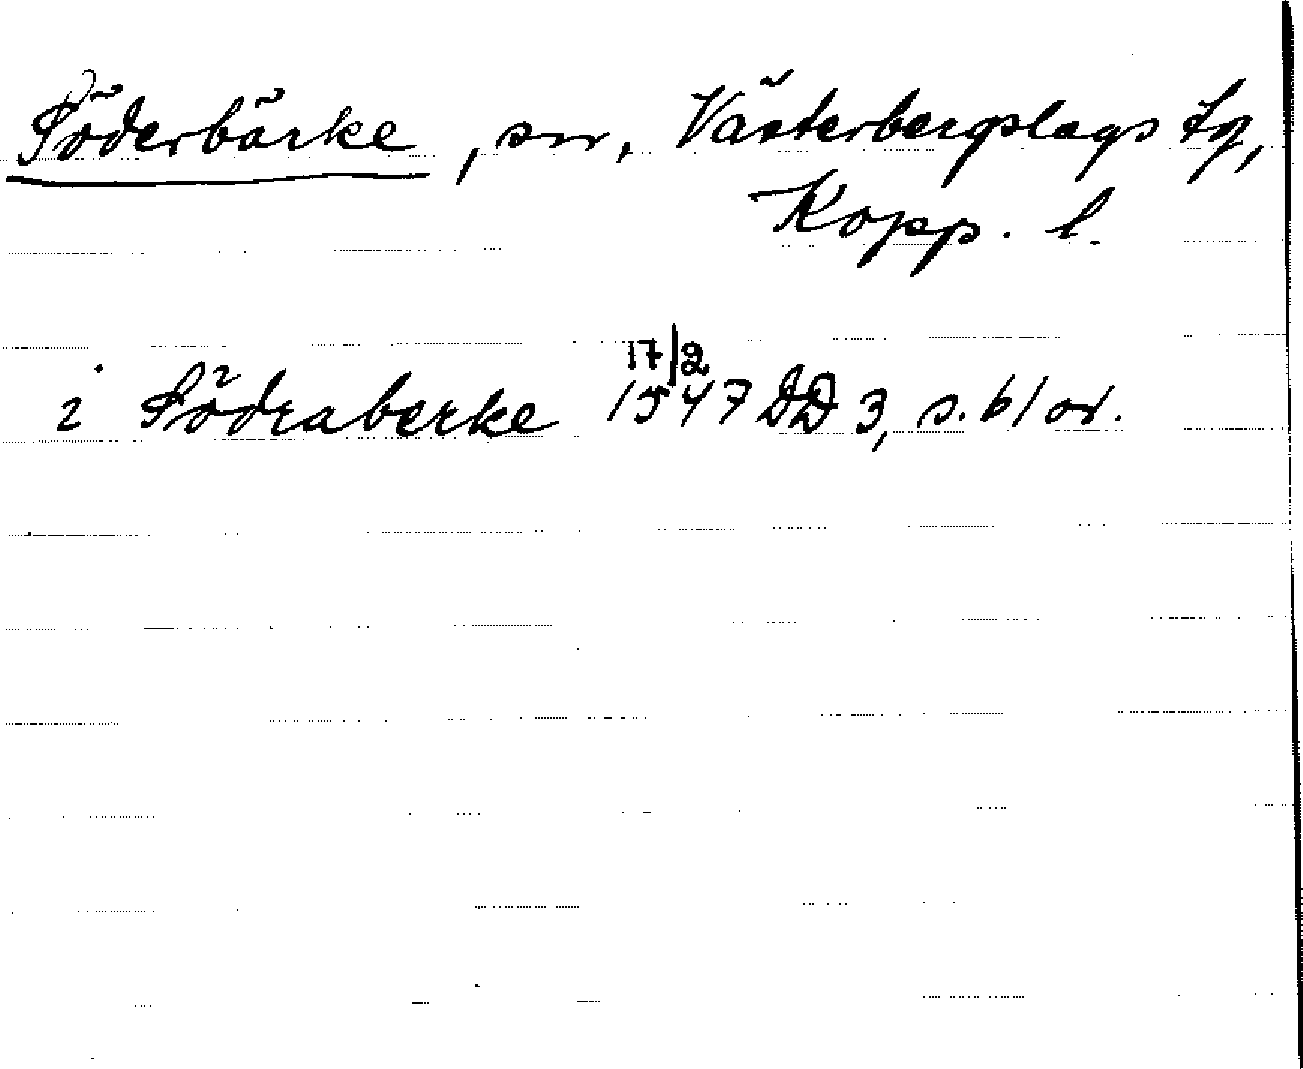 Söderbärke, sn, Västerbergslags tg,
Kopp. l.
i Södraberke 17/2 1547 DD 3, s. 61 or.